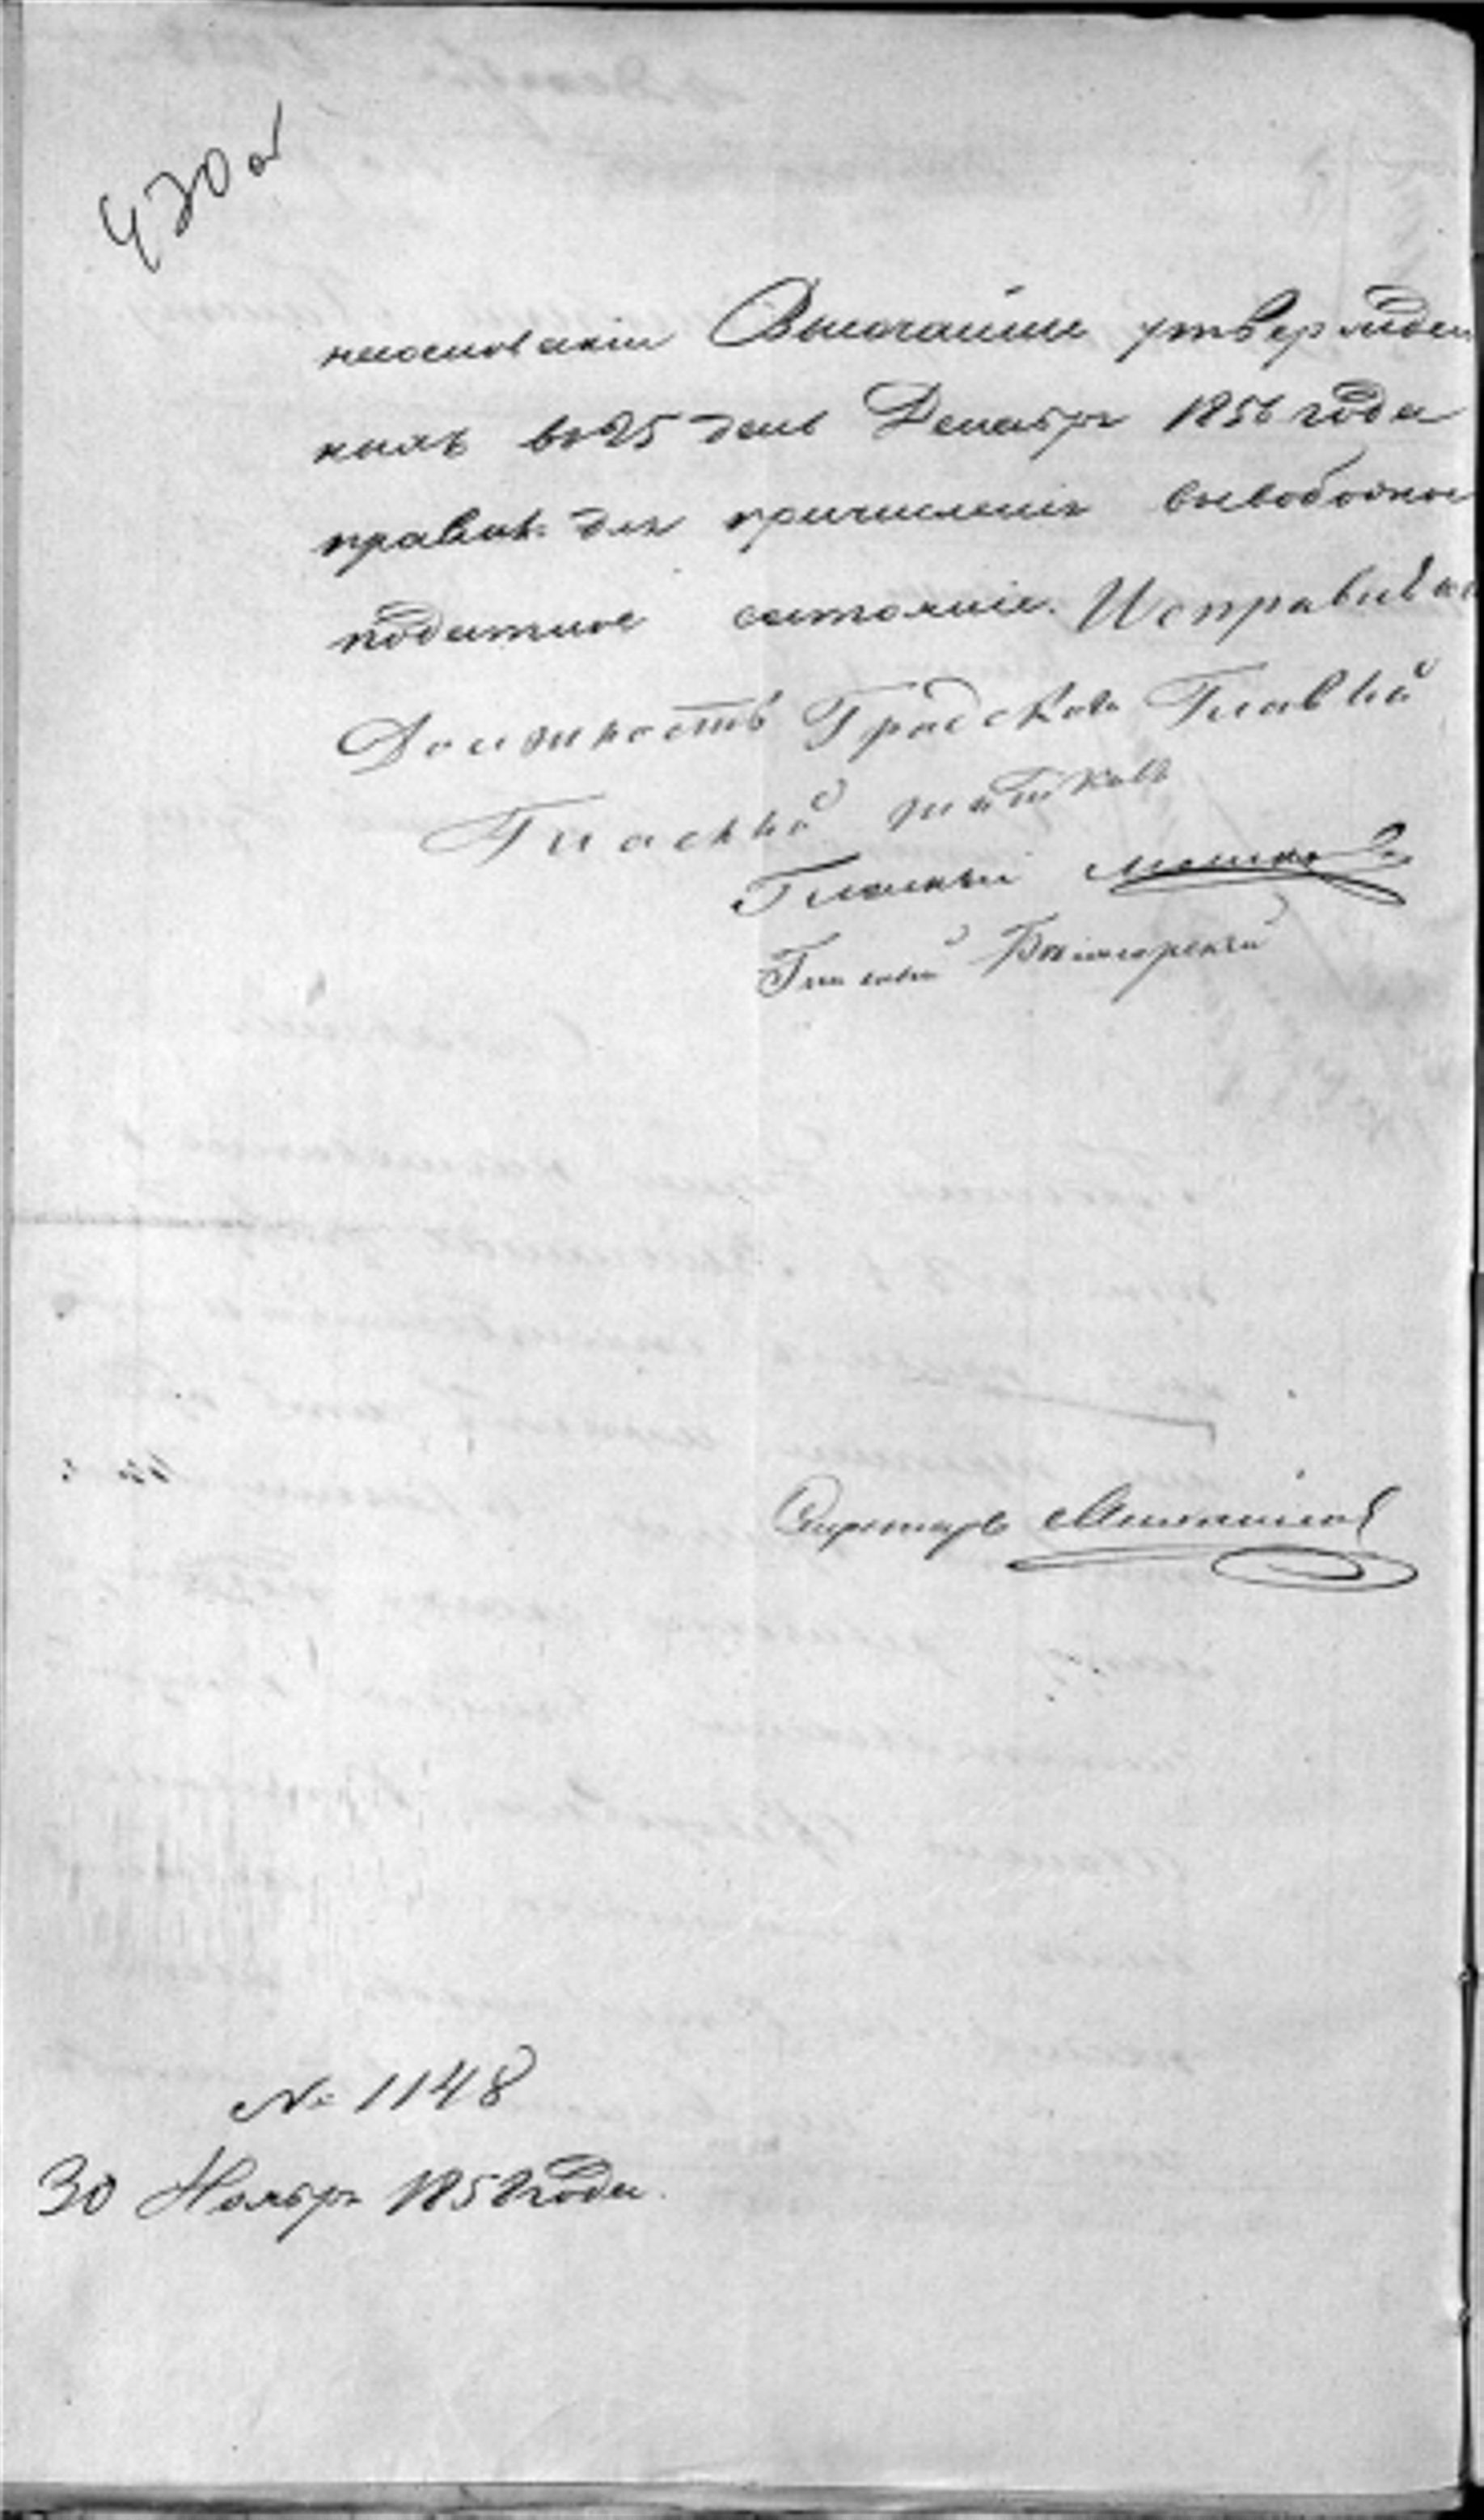 430 об
наоснованіи Высочайше утвержден
ныхъ въ 25 день Декабря 1856 года
правилъ для причисленія въсвободное
податное состояніе. Исправляю
Должность Градскова Главы
Гласный Житковъ
Гласный
Гласный
Секретарь
№ 1148
30 Ноября 1858 года.